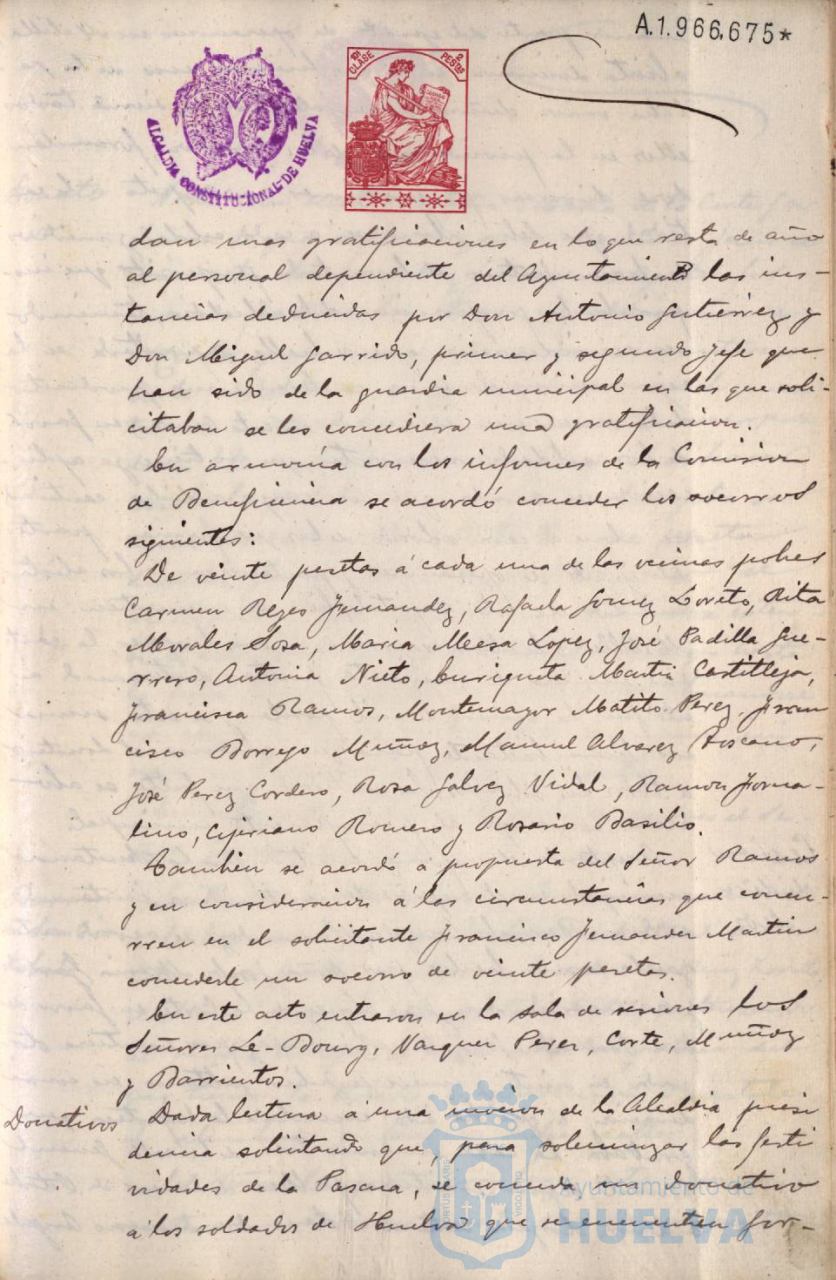 A.1.966,675*
10ª CLASE 2 PESTAS
ALCALDIA CONSTITUCIONAL DE HUELVA
dan unas gratificaciones en lo que resta de año
al personal dependiente del Ayuntamiento las ins-
tancias deducidas por Don Antonio Gutierrez y
Don Miguel Garrido, primer y segundo Jefe que
han sido de la guardia municipal en las que soli-
citaban se les concediera una gratificacion.
En armonía con los informes de la Comision
de Beneficencia se acordó conceder los socorros
siguientes:
De veinte pesetas á cada una de las vecinas pobres
Carmen Reyes Fernandez, Rafaela Gomez Loreto, Rita
Morales Sosa, Maria Mesa Lopez, José Padilla Gue-
rrero, Antonia Nieto, Enriqueta Martin Castilleja,
Francisca Ramos, Montemayor Matito Perez, Fran
cisco Borrego Muñoz, Manuel Alvarez Toscano,
José Perez Cordero, Rosa Galvez Vidal, Ramon Forna-
lino, Cipriano Romero y Rosario Basilio.
Tambien se acordó a propuesta del Señor Ramos
y en consideracion á las circunstancias que concu-
rren en el solicitante Francisco Fernandez Martin
concederle un socorro de veinte pesetas.
En este acto entraron en la sala de sesiones los
Señores Le-Bourg, Vazquez Perez, Corte, Muñoz
y Barrientos.
Donativos Dada lectura á una mocion de la Alcaldia presi
dencia solicitando que, para solemnizar las festi
vidades de la Pascua, se conceda un donativo
á los soldados de Huelva que se encuentren for-
Ayuntamiento de
HUELVA